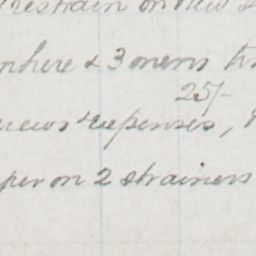 restrain on new
where & 3 mens
25/-
news & expenses,
per on 2 strainers